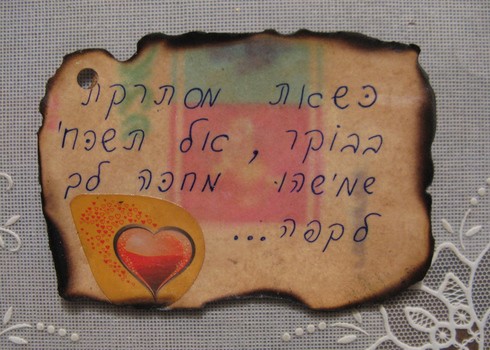 כשאת מסתרקת
בבוקר, אל תשכחי
שמישהו מחכה לך
לקפה...